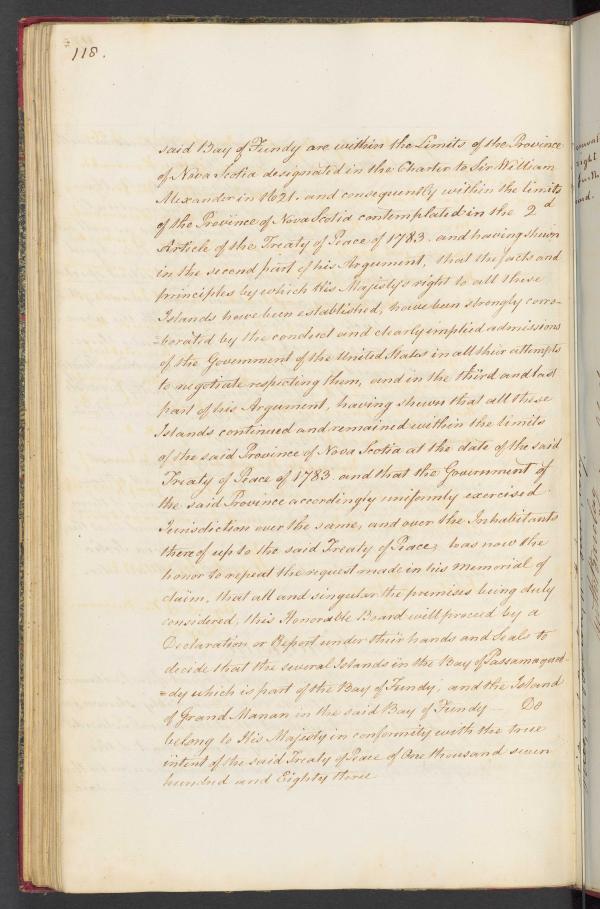 118.
said Bay of Fundy are within the Limits of the Province
of Nova Scotia designated in the Charter to Sir William
Alexander in 1621. and consequently within the limits
of the Province of Nova Scotia contemplated in the 2d
Article of the Treaty of Peace of 1783. and having shewn
in the second part of his Argument, that the facts and
principles by which His Majesty's right to all these
Islands have been established, have been strongly corro-
=borated by the conduct and clearly implied admissions
of the Government of the United States in all their attempts
to negotiate respecting them, and in the third and last
part of his Argument, having shewn that all these
Islands continued and remained within the limits
of the said Province of Nova Scotia at the date of the said
Treaty of Peace of 1783. and that the Government of
the said Province accordingly uniformly exercised
Jurisdiction over the same, and over the Inhabitants
thereof up to the said Treaty of Peace; has now the
honor to repeat the request made in his Memorial of
claim, that all and singular the premises being duly
considered, this Honorable Board will proceed by a
Declaration or Report under their hands and Seals to
decide that the several Islands in the Bay of Passamaquod-
=dy which is part of the Bay of Fundy, and the Island
of Grand Manan in the said Bay of Fundy — Do
belong to His Majesty in conformity with the true
intent of the said Treaty of Peace of One thousand seven
hundred and Eighty three